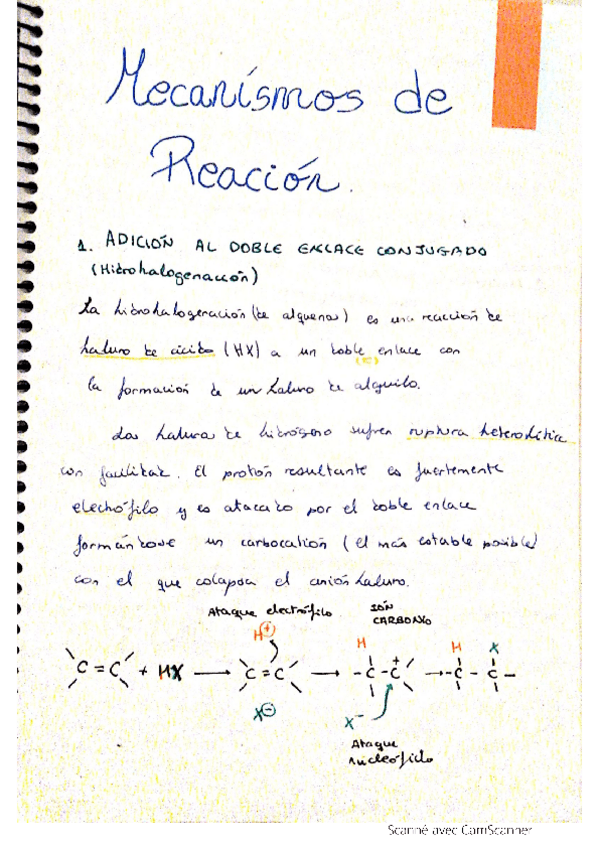 Mecanísmos de
Reación.
1. ADICIÓN AL DOBLE ENLACE CONJUGADO
(Hidrohalogenación)
La hidrohalogeración (de alquenos) es una reacción de
haluro de ácido (HX) a un doble enlace con
(C=C)
la formación de un haluro de alquilo.
Los haluros de hidrógeno sufren ruptura heterolítica
con facilidad. El protión resultante es fuertemente
electrófilo y es atacado por el doble enlace
formándose un carbocatión (el más estable posible)
con el que colapsa el anión haluro.
Ataque electrófilo
IÓN
CARBONIO
H+ H H X
C=C + HX → C=C → -C-C+ → -C-C-
X⊖ X-
Ataque
nucleófilo
Scanné avec CamScanner